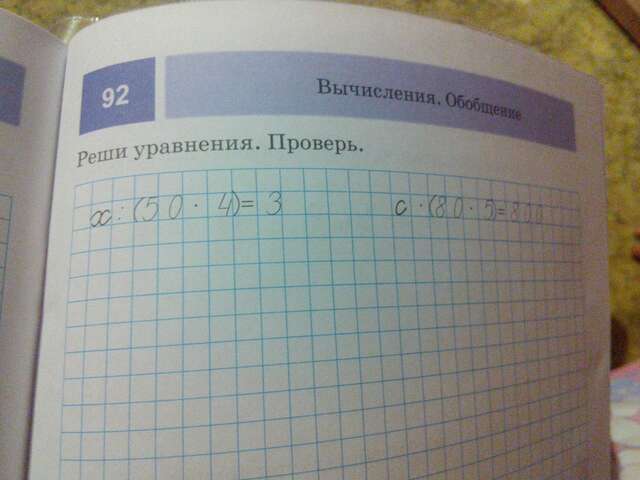 92
Вычисления. Обобщение
Реши уравнения. Проверь.
x : (50 · 4) = 3
c · (80 · 5) = 800